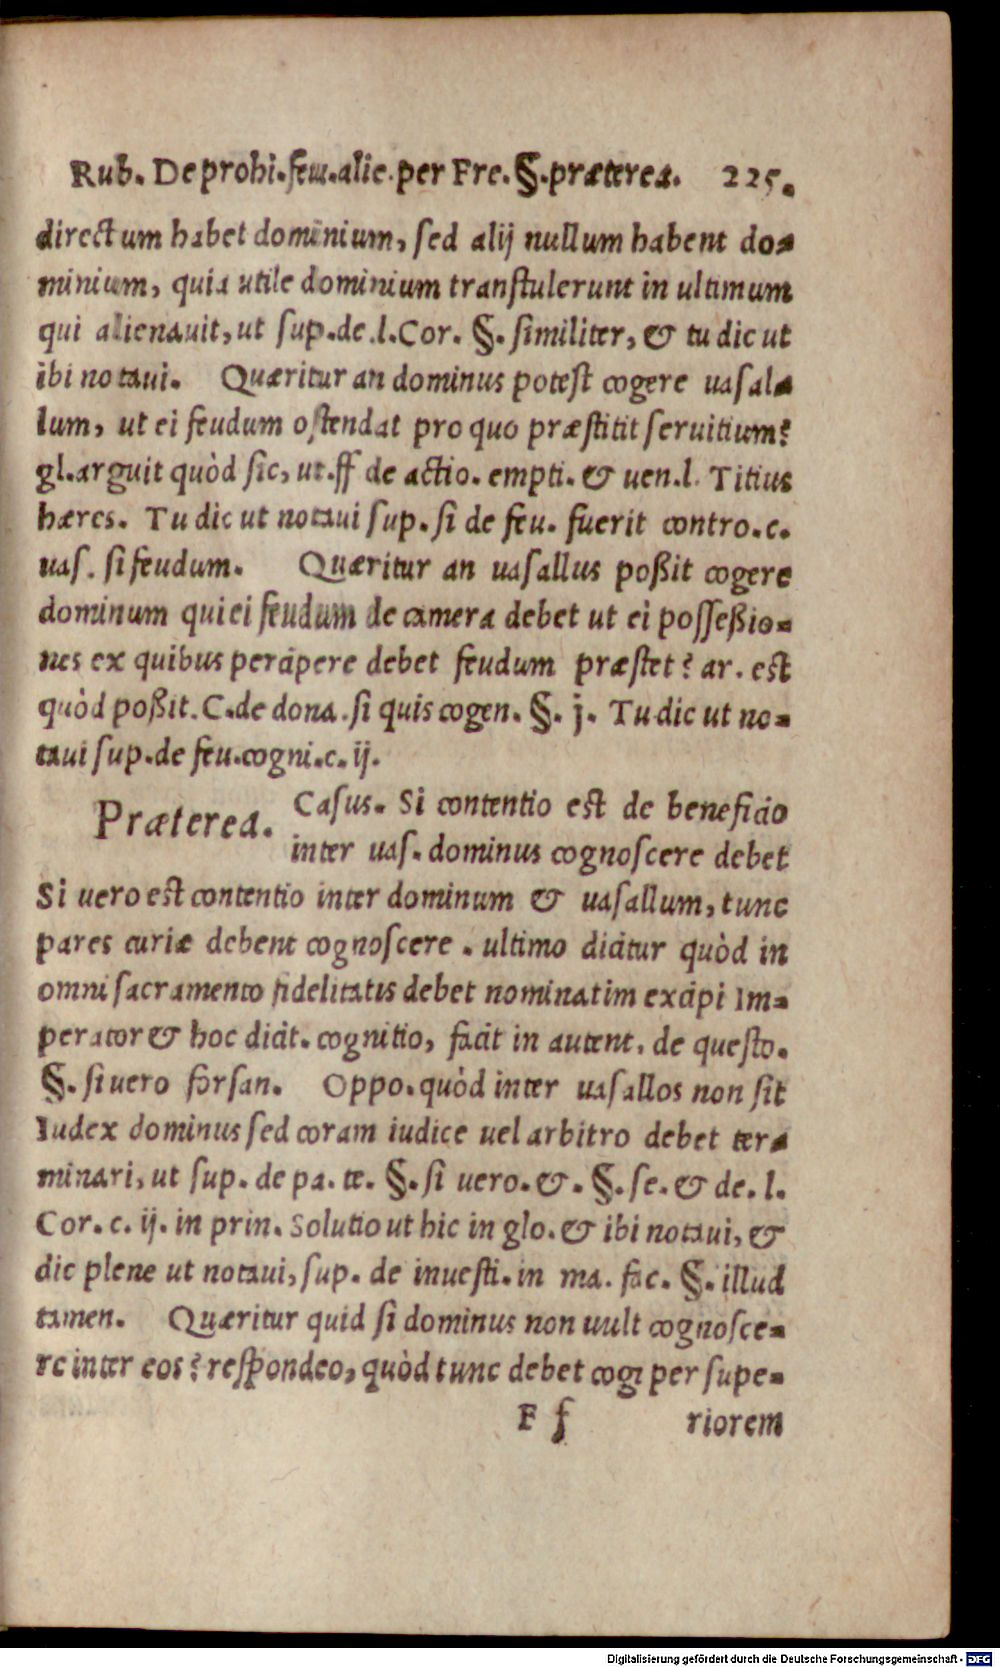 Rub. De prohi. feu. alie. per Fre. §. præterea. 225.
directum habet dominium, sed alij nullum habent do-
minium, quia utile dominium transtulerunt in ultimum
qui alienauit, ut sup. de .l. Cor. §. similiter, & tu dic ut
ibi notaui. Quæritur an dominus potest cogere uasal-
lum, ut ei feudum ostendat pro quo præstitit seruitium?
gl. arguit quòd sic, ut. ff de actio. empti. & uen. l. Titius
hæres. Tu dic ut notaui sup. si de feu. fuerit contro. c.
uas. si feudum. Quæritur an uasallus poßit cogere
dominum qui ei feudum de camera debet ut ei posseßio-
nes ex quibus percipere debet feudum præstet? ar. est
quòd poßit. C. de dona. si quis cogen. §. j. Tu dic ut no-
taui sup. de feu. cogni. c. ij.
Præterea. Casus. Si contentio est de beneficio
inter uas. dominus cognoscere debet
Si uero est contentio inter dominum & uasallum, tunc
pares curiæ debent cognoscere . ultimo dicitur quòd in
omni sacramento fidelitatis debet nominatim excipi Im-
perator & hoc dicit. cognitio, facit in autent. de questo.
§. si uero forsan. Oppo. quòd inter uasallos non sit
Iudex dominus sed coram iudice uel arbitro debet ter-
minari, ut sup. de pa. te. §. si uero. &. §. se. & de. l.
Cor. c. ij. in prin. Solutio ut hic in glo. & ibi notaui, &
dic plene ut notaui, sup. de inuesti. in ma. fac. §. illud
tamen. Quæritur quid si dominus non uult cognosce-
re inter eos? respondeo, quòd tunc debet cogi per supe-
F f riorem
Digitalisierung gefördert durch die Deutsche Forschungsgemeinschaft - DFG